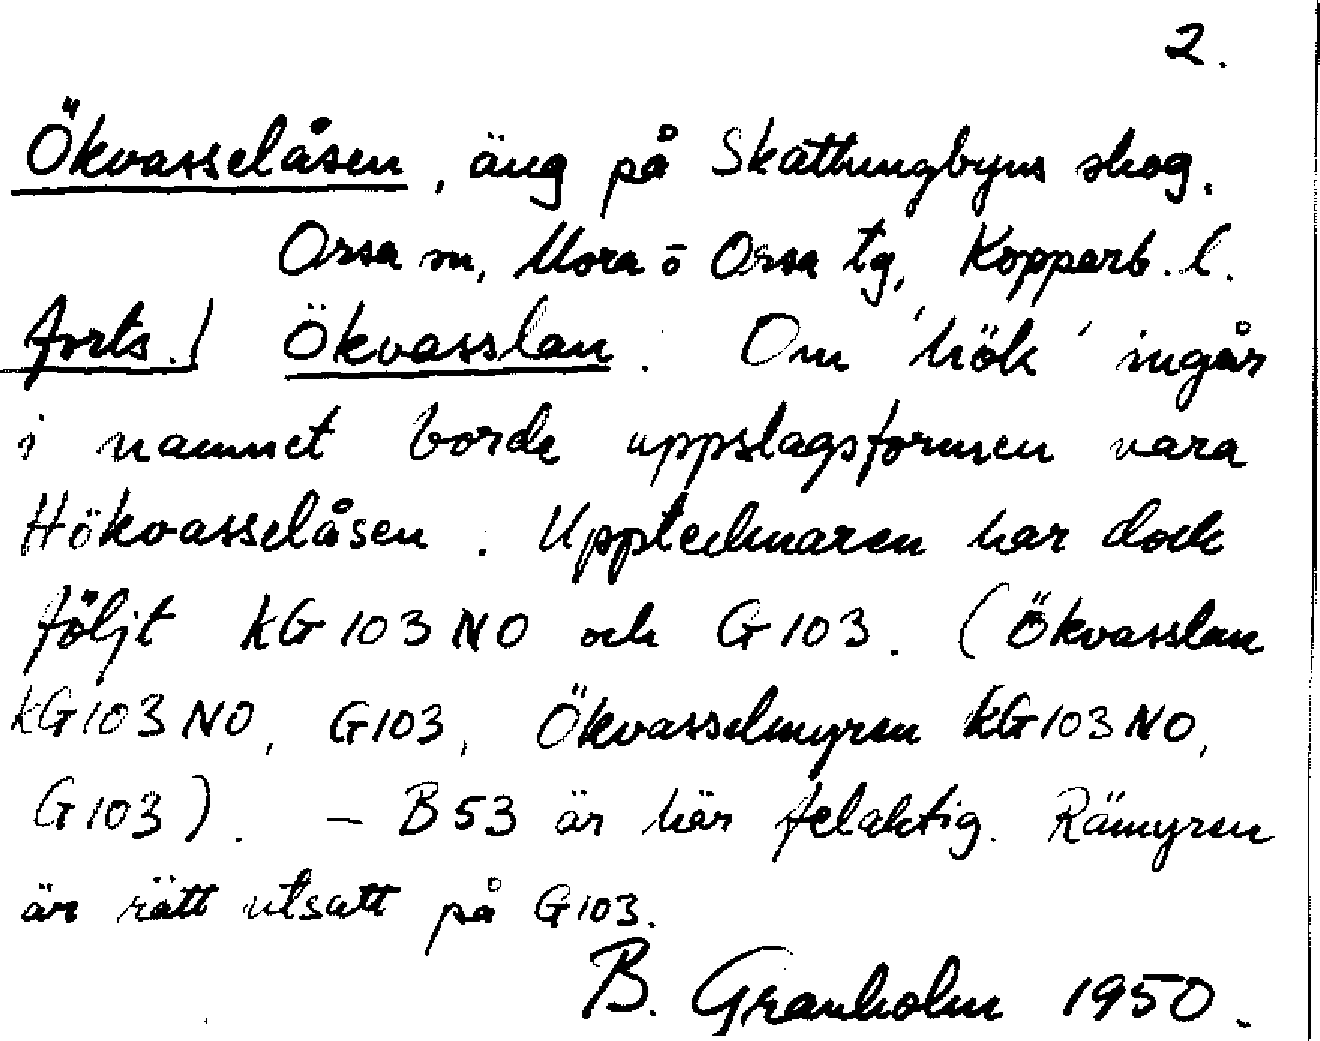 2.
Ökvasselåsen, äng på Skattungbyns skog.
Orsa sn, Mora o Orsa tg, Kopparb. l.
forts.) Ökvasslan. Om 'hök' ingår
i namnet borde uppslagsformen vara
Hökvasselåsen. Upptecknaren har dock
följt kG 103 NO och G 103. (Ökvasslan
kG 103 NO, G 103, Ökvasselmyren kG 103 NO,
G 103). - B 53 är här felaktig. Rämyren
är rätt utsatt på G 103.
B. Granholm 1950.